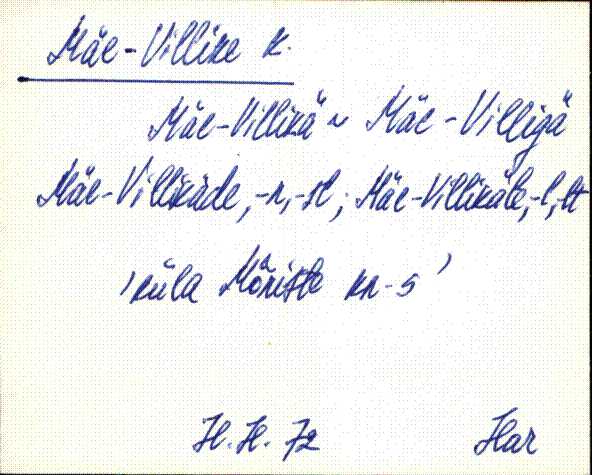 Mäe-Villike k.
Mäe-Villikä ~ Mäe-Villigä
Mäe-Villikäde, -n, -st; Mäe-Villikäle, -l, -lt
'küla Mõniste kn-s'
H. H. 72 Har